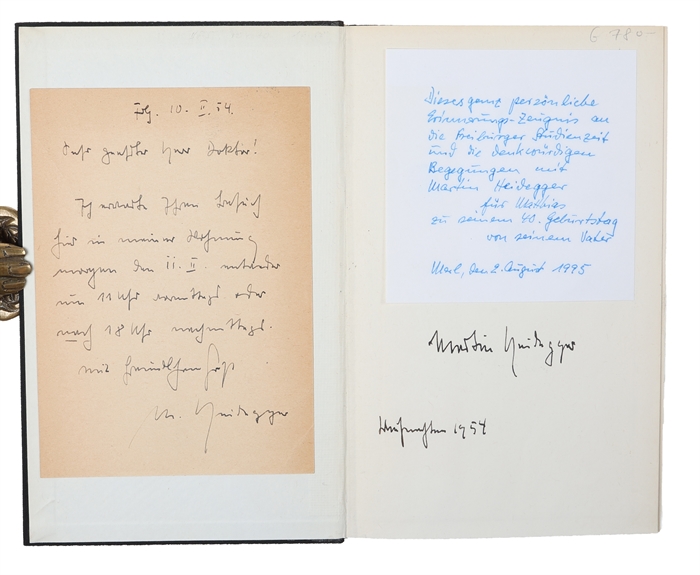 Frbg. 10. II. 54.
Sehr geehrter Herr Doktor!
Ich erwarte Ihren Besuch
hier in meiner Wohnung
morgen den 11. II. entweder
um 11 Uhr vormittags oder
nach 18 Uhr nachmittags.
mit freundlichem Gruß
M. Heidegger
€ 780-
Dieses ganz persönliche
Erinnerungs-Zeugnis an
die Freiburger Studienzeit
und die denkwürdigen
Begegnungen mit
Martin Heidegger
für Mathias
zu seinem 40. Geburtstag
von seinem Vater
Marl, den 2. August 1995
Martin Heidegger
Weihnachten 1954